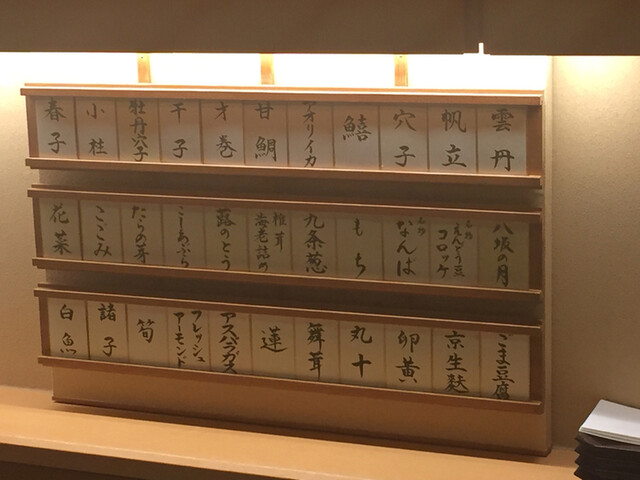 雲丹
帆立
穴子
鱚
アオリイカ
甘鯛
才巻
干子
牡丹穴子
小柱
春子
八坂の月
名物 えんどう豆コロッケ
名物 なんは
もち
九条葱
椎茸海老詰め
蕗のとう
こしあぶら
たらの芽
こごみ
花菜
ごま豆腐
京生麩
卵黄
丸十
舞茸
蓮
アスパラガス
フレッシュアーモンド
筍
諸子
白魚